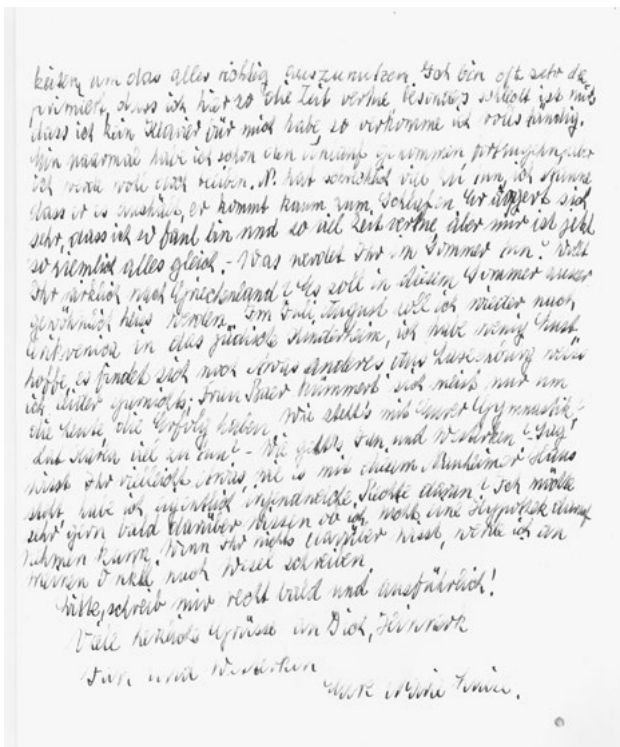 keiten, um das alles richtig auszunutzen. Ich bin oft sehr de
primiert, dass ich hier so die Zeit vertue, besonders schlecht ist mir,
dass ich kein Klavier für mich habe, so verkomme ich vollständig.
Ein paarmal habe ich schon den genommen fortzugehn, aber
ich werde wohl doch bleiben. N. hat schrecklich viel zu tun, ich staune
dass er es aushält, er kommt kaum zum Schlafen. Er ärgert sich
sehr, dass ich so faul bin und so viel Zeit vertue aber mir ist jetzt
so ziemlich alles gleich. - Was werdet Ihr im Sommer tun? Wollt
Ihr wirklich nach Griechenland? Es soll in diesem Sommer ausser
gewöhnlich heiss werden. Im Juli, August soll ich wieder nach
in das jüdische Kinderheim, ich habe wenig Lust
hoffe, es findet sich noch etwas anderes. Aus
ich leider garnichts. Frau Baer kümmert sich meist nur um
die Leute, die Erfolg haben. Wie steht's mit Eurer Gymnastik?
hat viel zu tun? - Wie geht's und
wisst Ihr vielleicht etwas, wie es mit diesem Mannheimer Haus
steht, habe ich eigentlich irgendwelche Rechte daran? Ich möchte
sehr gern bald darüber wissen ob ich nicht eine Hypothek darauf
nehmen kann. Wenn Ihr nichts darüber wisst, werde ich an
meinen Onkel nach Wesel schreiben.
Bitte, schreib mir recht bald und ausführlich!
Viele herzliche Grüsse an Dich, Heinrich
und
Eure